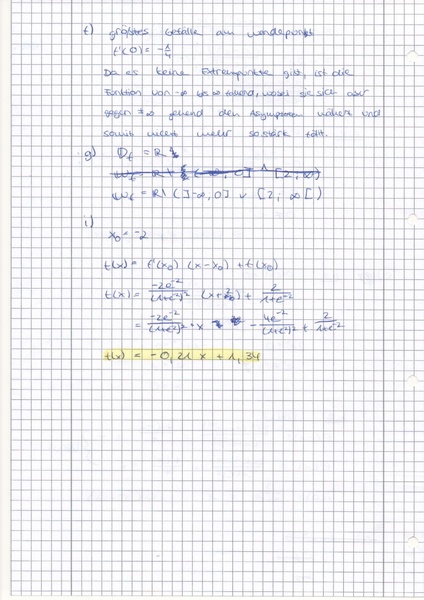 f) größtes Gefälle am Wendepunkt
f'(0) = -1/2
Da es keine Extrempunkte gibt, ist die
Funktion von -∞ bis ∞ fallend, wobei sie sich aber
gegen ±∞ gehend den Asymptoten nähert und
somit nicht mehr so stark fällt.
g) D_f = ℝ
W_f = ℝ \ (]-∞, 0] ∪ [2, ∞[)
i)
x₀ = -2
t(x) = f'(x₀) (x-x₀) + f(x₀)
t(x) = -2e⁻²/(1+e⁻²)² (x+2) + 2/(1+e⁻²)
= -2e⁻²/(1+e⁻²)² · x - 4e⁻²/(1+e⁻²)² + 2/(1+e⁻²)
t(x) = -0,21 x + 1,34